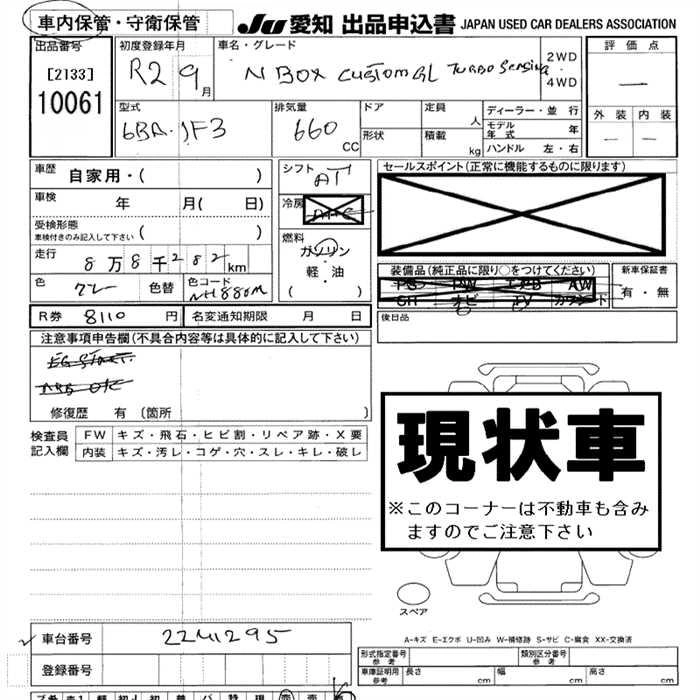 車内保管・守衛保管
JU 愛知 出品申込書 JAPAN USED CAR DEALERS ASSOCIATION
出品番号
[2133]
10061
初度登録年月
R2 9月
車名・グレード
N BOX CUSTOM GL TURBO SENSING
2WD
・
4WD
評価点
―
外装 内装
― ―
型式
6BA-JF3
排気量
660 CC
ドア
形状
定員 人
積載 kg
ディーラー・並行
モデル年式 年
ハンドル 左・右
車歴 自家用・( )
車検 年 月( 日)
受検形態
車検付きのみ記入して下さい ( )
走行 8万8千282km
色 グレー 色替 色コード NH880M
シフト AT
冷房
燃料
ガソリン
・
軽・油
( )
セールスポイント(正常に機能するものに限ります)
装備品(純正品に限り○をつけてください)
PS PW エアB AW
SH ナビ TV カワシート
新車保証書
有・無
R券 8110 円 名変通知期限 月 日
後日品
注意事項申告欄(不具合内容等は具体的に記入して下さい)
EG START.
OK
修復歴 有(箇所 )
検査員記入欄
FW キズ・飛石・ヒビ割・リペア跡・X要
内装 キズ・汚レ・コゲ・穴・スレ・キレ・破レ
現状車
※このコーナーは不動車も含み
ますのでご注意下さい
スペア
A-キズ E-エクボ U-凹み W-補修跡 S-サビ C-腐食 XX-交換済
車台番号 2241295
登録番号
形式指定番号 参考
類別区分番号 参考
車庫証明用 参考 長さ cm 幅 cm 高さ cm